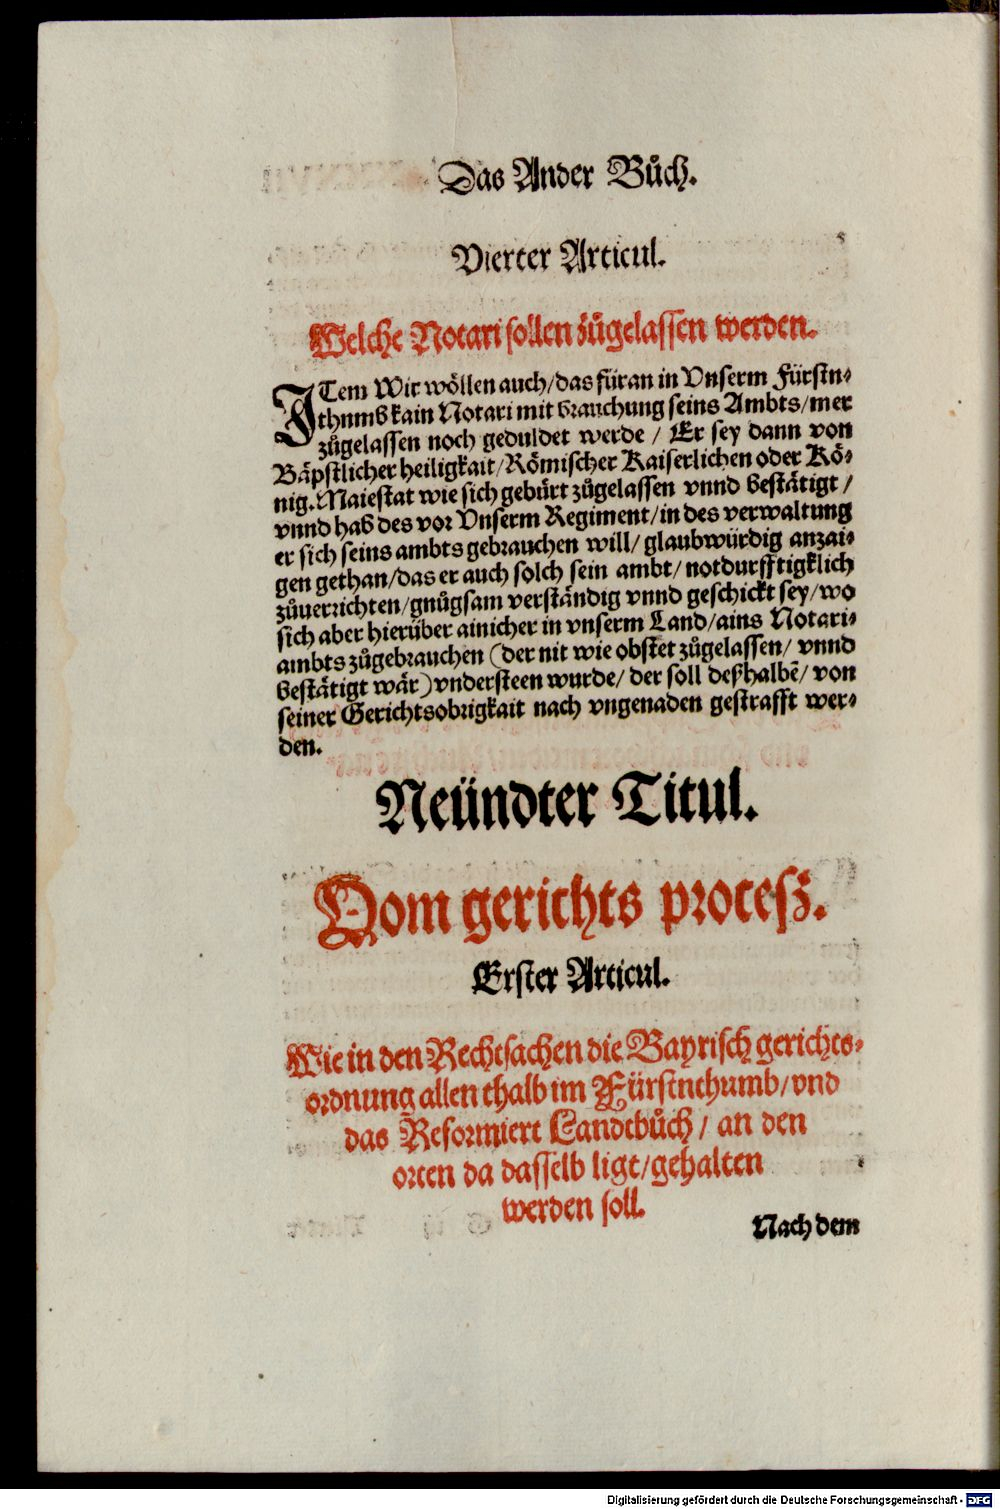 Das Ander Bůch.
Vierter Articul.
Welche Notari sollen zůgelassen werden.
ITem Wir wöllen auch/das füran in Vnserm Fürstn⸗
thumb kain Notari mit brauchung seins Ambts/mer
zůgelassen noch geduldet werde / Er sey dann von
Bäpstlicher heiligkait/Römischer Kaiserlichen oder Kö⸗
nig. Maiestat wie sich gebürt zůgelassen vnnd bestätigt /
vnnd hab des vor Vnserm Regiment/in des verwaltung
er sich seins ambts gebrauchen will/ glaubwürdig anzai⸗
gen gethan/das er auch solch sein ambt/ notdurfftigklich
zůuerrichten/gnůgsam verständig vnnd geschickt sey/wo
sich aber hierüber ainicher in vnserm Land/ains Notari⸗
ambts zůgebrauchen (der nit wie obstet zůgelassen/ vnnd
bestätigt wär) vndersteen wurde/ der soll deßhalbē/ von
seiner Gerichtsobrigkait nach vngenaden gestrafft wer⸗
den.
Neündter Titul.
Vom gerichts proceß.
Erster Articul.
Wie in den Rechtsachen die Bayrisch gerichts⸗
ordnung allen thalb im Fürstnthumb/vnd
das Reformiert Landtbůch / an den
orten da dasselb ligt/gehalten
werden soll.
Nach dem
Digitalisierung gefördert durch die Deutsche Forschungsgemeinschaft - DFG